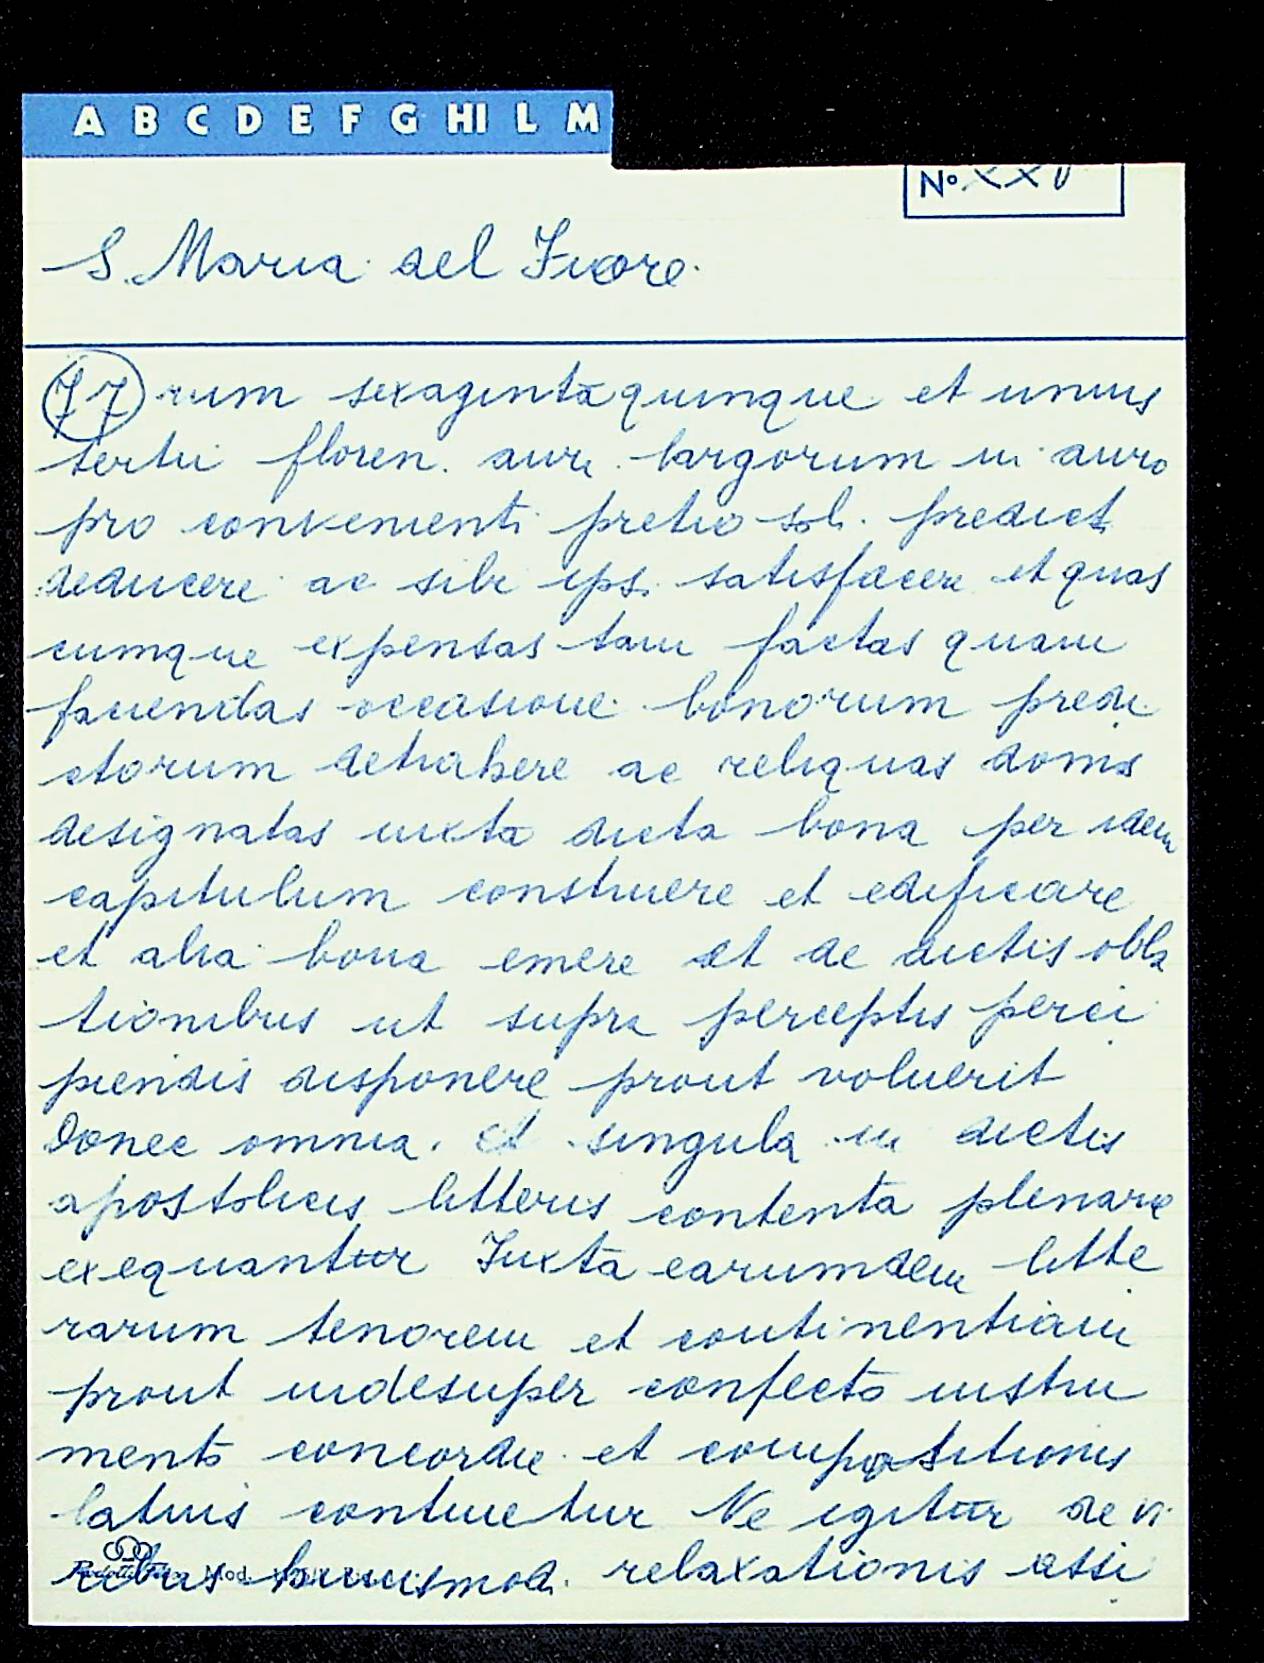 A B C D E F G HI L M
N° XXV
S. Maria del Fiore.
77 rum sexaginta quinque et unius
tertii floren. auri largorum in auro
pro convenienti pretio sol. predict
deducere ac sibi ips. satisfacere et quas
cumque expensas tam factas quam
faciendas occasione bonorum predi
ctorum detrahere ac reliquas domos
designatas iuxta dicta bona per idem
capitulum construere et edificare
et alia bona emere et de dictis obla
tionibus ut supra perceptis perci
piendis disponere prout voluerit
Donec omnia. et singula in dictis
apostolicis litteris contenta plenarie
exequantur Iuxta earumdem litte
rarum tenorem et continentiam
prout indesuper confecto instru
mento concordie et compositionis
latius continetur Ne igitur de vi
ribus huiusmod. relaxationis assi
Mod.